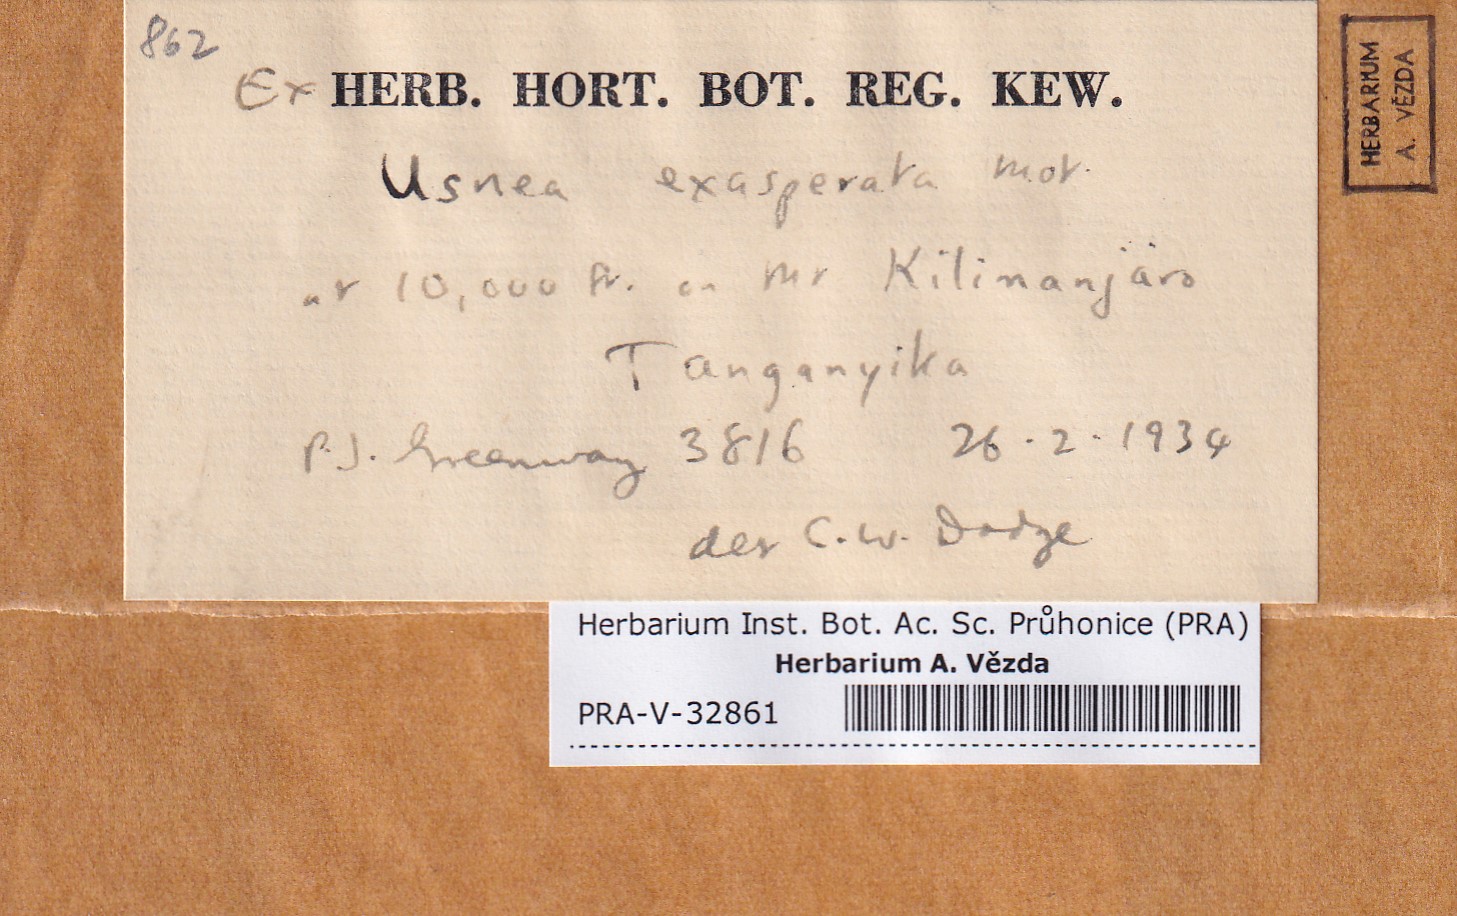 862
Ex HERB. HORT. BOT. REG. KEW.
Usnea exasperata Mot.
at 10,000 ft. on Mt Kilimanjäro
Tanganyika
P.J. Greenway 3816 26.2.1934
det C.W. Dodge
HERBARIUM
A. VĚZDA
Herbarium Inst. Bot. Ac. Sc. Průhonice (PRA)
Herbarium A. Vězda
PRA-V-32861